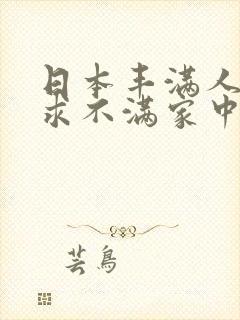 日本丰满人
求不满家中
芸鸟